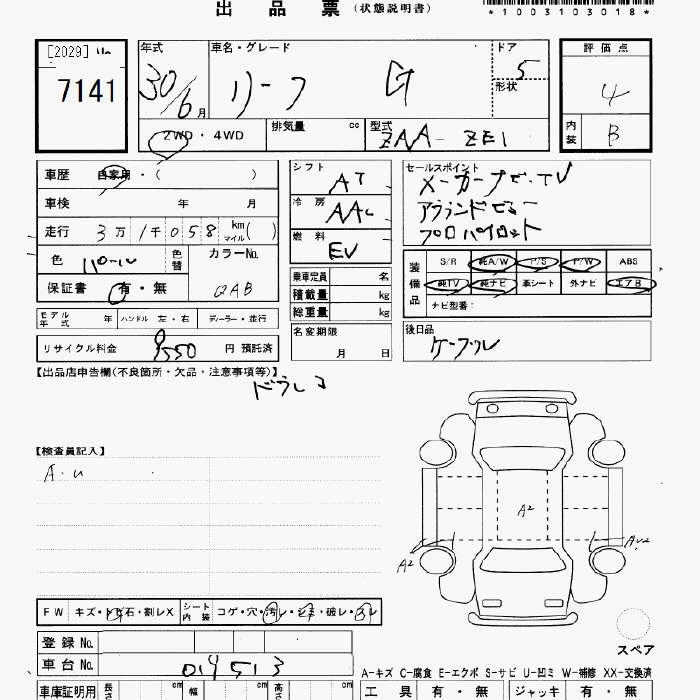 出品票（状態説明書）
*1003103018*
[2029]
7141
年式 30/6月
車名・グレード リーフ G
ドア 5
形状
評価点 4
内装 B
2WD・4WD
排気量 cc
型式 ZAA-ZE1
車歴 自家用・（ ）
車検 年 月
走行 3万1千058 km マイル( )
色 パール 色替
カラーNo. QAB
保証書 有・無
シフト AT
冷房 AAC
燃料 EV
乗車定員 名
積載量 kg
総重量 kg
名変期限 月 日
セールスポイント
メーカーナビ・TV
アラウンドビュー
プロパイロット
装備品
S/R 純A/W P/S P/W ABS
純TV 純ナビ 革シート 外ナビ エアB
ナビ型番：
後日品 ケーブル
モデル年式 年 ハンドル 左・右 ディーラー・並行
リサイクル料金 9550 円 預託済
【出品店申告欄(不良箇所・欠品・注意事項等)】
ドラレコ
【検査員記入】
A・U
A2
A2
AU2
スペア
FW キズ・トビ石・割レX シート内装 コゲ・穴・汚レ・シミ・破レ・スレ
登録No.
車台No. 019513
A-キズ C-腐食 E-エクボ S-サビ U-凹ミ W-補修 XX-交換済
車庫証明用 長さ cm 幅 cm 高さ cm
工具 有・無 ジャッキ 有・無